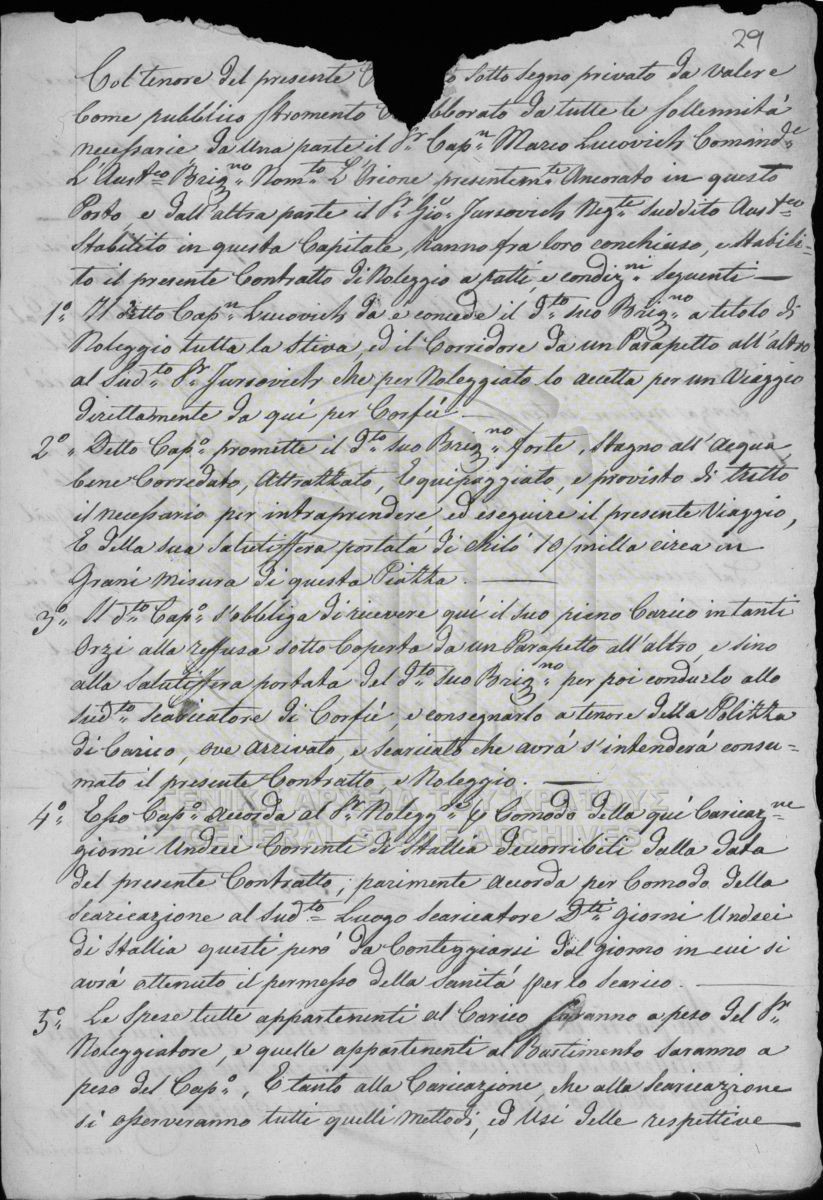 29
Col tenore del presente C o sotto segno privato da valere
Come pubblico Stromento Cobborato da tutte le sollennitá
necessarie da una parte il Sr. Capn. Marco Lucovich Comande
L'Austco. Brigno. Nomto. L'Orione presentemte. Ancorato in questo
Porto e dall'altra parte il Sr. Gio. Jursovich Negte. suddito Austco.
Stabilito in questa Capitale, hanno fra loro conchiuso, e stabili-
to il presente Contratto di Noleggio a patti e condizni. seguenti —
1o. Il detto Capn. Lucovich da e concede il dto. suo Brigno. a titolo di
Noleggio tutta la Stiva, ed il Corridore da un Parapetto all'altro
al sudto. Sr. Jursovich che per Noleggiato lo accetta per un Viaggio
direttamente da quí per Corfú —
2o. Detto Capo. promette il dto. suo Brigno. forte, Stagno all'Acqua
bene Corredato, Attrazzato, Equipaggiato, e provisto di tutto
il necessario per intraprendere, ed eseguire il presente Viaggio,
E della sua salutiffera portata di chiló 18/milla circa in
Grani misura di questa Piazza. —
3o. Il dto. Capo. s'obbliga di ricevere qui il suo pieno Carico in tanti
Orzi alla reffusa sotto Coperta da un Parapetto all'altro, e sino
alla Salutiffera portata del dto. suo Brigno. per poi condurlo allo
sudto. scaricatore di Corfú, e consegnarlo a tenore della Polizza
di Carico, ove arrivato, e scaricato che avrá s'intenderá consu-
mato il presente Contratto, e Noleggio. —
4o. Esso Capo. Accorda al Sr. Noleggre. Comodo della quí Caricazne
giorni Undeci Correnti di Stallia decorribili dalla data
del presente Contratto, parimente accorda per Comodo della
scaricazione al sudto. Luogo scaricatore Dtti Giorni Undeci
di Stallia questi peró da Conteggiarsi dal giorno in cui si
avrá ottenuto il permesso della sanitá per lo scarico. —
5o. Le spese tutte appartenenti al Carico saranno a peso del Sr.
Noleggiatore, e quelle appartenenti al Bastimento saranno a
peso del Capo., E tanto alla Caricazione, che alla scaricazione
si osserveranno tutti quelli mettodi, ed Usi delle respettive
ΓΕΝΙΚΑ ΑΡΧΕΙΑ ΤΟΥ ΚΡΑΤΟΥΣ
GENERAL STATE ARCHIVES